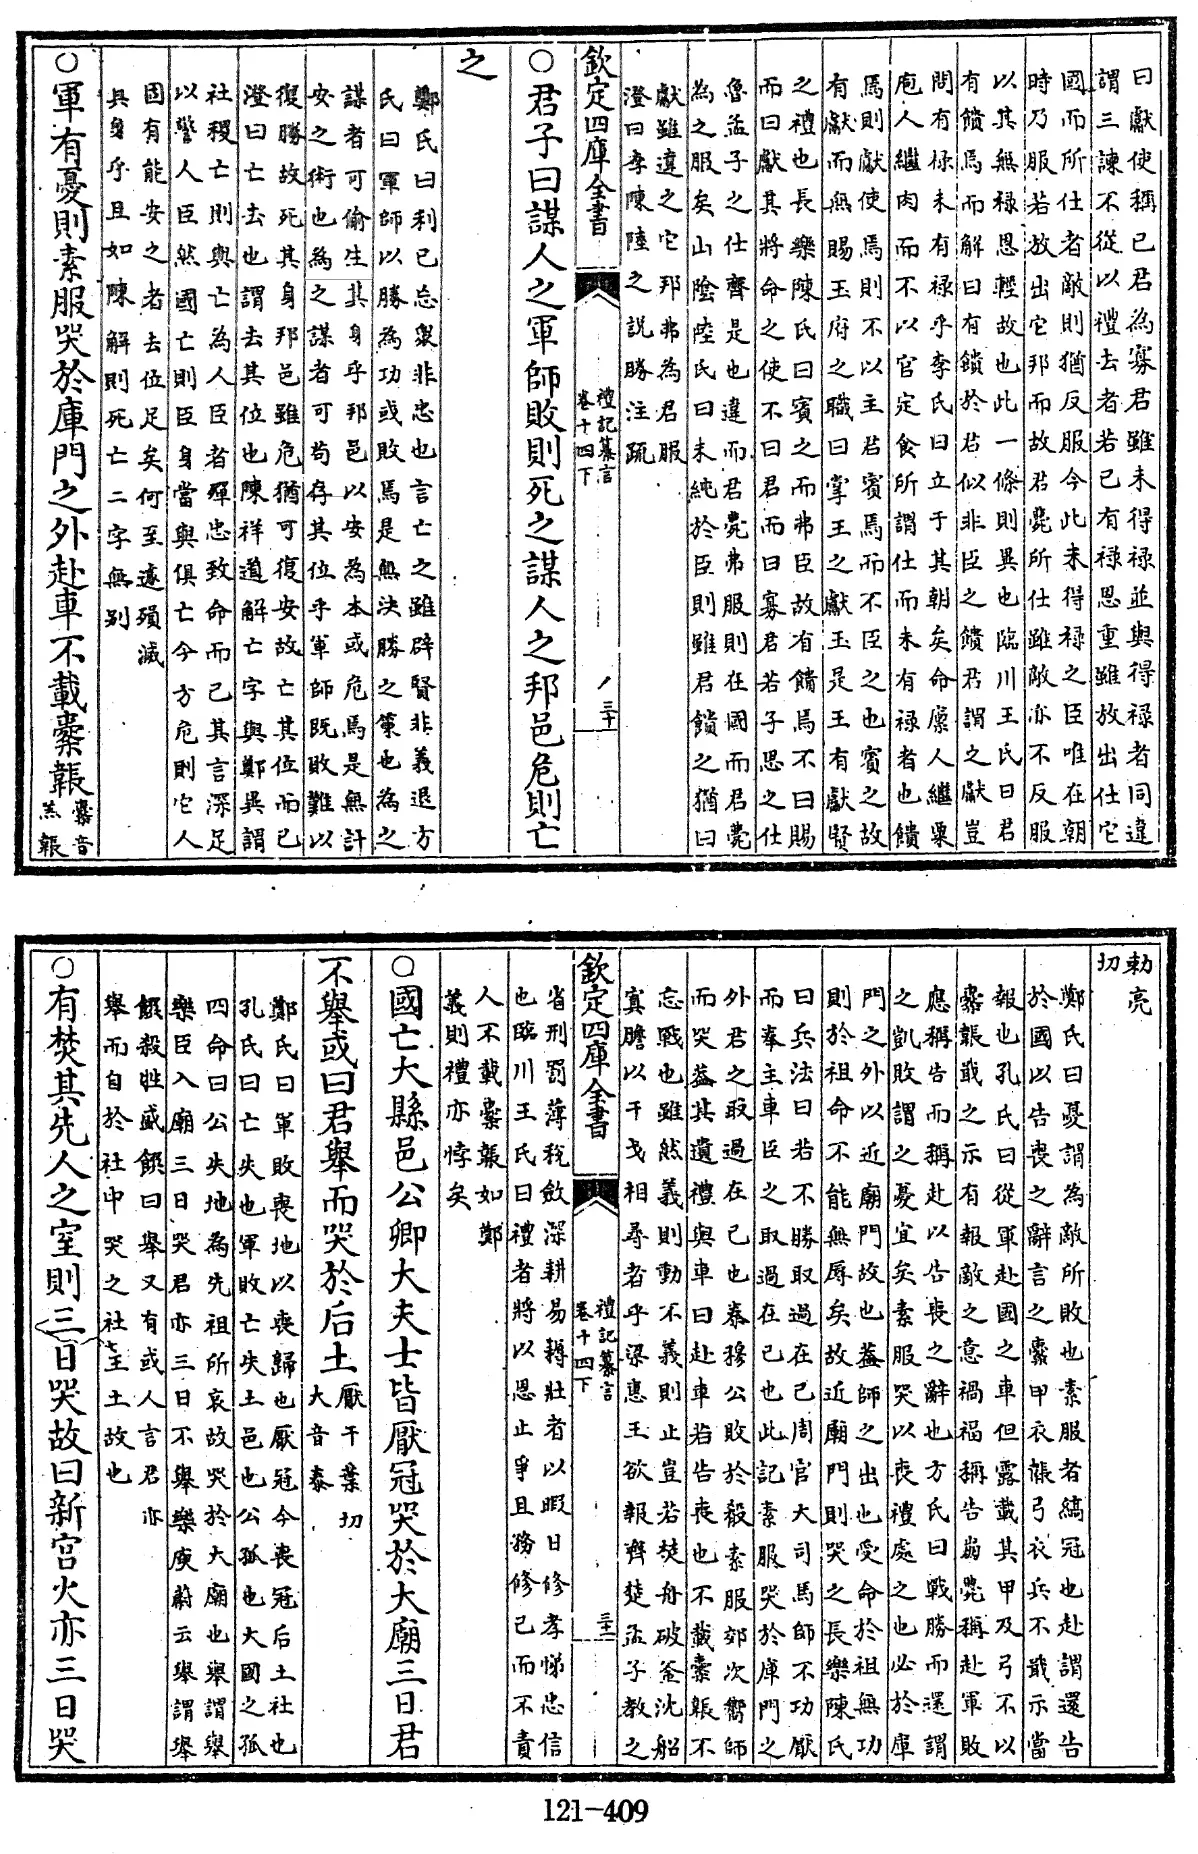 曰獻使稱己君為寡君雖未得祿並與得祿者同違
謂三諫不從以禮去者若已有祿恩重雖放出仕它
國而所仕者敵則猶反服今此未得祿之臣唯在朝
時乃服若放出它邦而故君薨所仕雖敵亦不反服
以其無祿恩輕故也此一條則異也臨川王氏曰君
有饋焉而解曰有饋於君似非臣之饋君謂之獻豈
間有祿未有祿乎李氏曰立于其朝矣命廩人繼粟
庖人繼肉而不以官定食所謂仕而未有祿者也饋
焉則獻使焉則不以主君賓焉而不臣之也賓之故
有獻而無賜玉府之職曰掌王之獻玉是王有獻賢
之禮也長樂陳氏曰賓之而弗臣故有饋焉不曰賜
而曰獻其將命之使不曰君而曰寡君若子思之仕
魯孟子之仕齊是也違而君薨弗服則在國而君薨
為之服矣山陰陸氏曰未純於臣則雖君饋之猶曰
獻雖違之它邦弗為君服
澄曰李陳陸之說勝注疏
欽定四庫全書
禮記纂言
卷十四下
三十
○君子曰謀人之軍師敗則死之謀人之邦邑危則亡
之
鄭氏曰利己忘衆非忠也言亡之雖辟賢非義退方
氏曰軍師以勝為功或敗焉是無決勝之策也為之
謀者可偷生其身乎邦邑以安為本或危焉是無計
安之術也為之謀者可苟存其位乎軍師既敗難以
復勝故死其身邦邑雖危猶可復安故亡其位而已
澄曰亡去也謂去其位也陳祥道解亡字與鄭異謂
社稷亡則與亡為人臣者殫忠致命而已其言深足
以警人臣然國亡則臣身當與俱亡今方危則它人
固有能安之者去位足矣何至遽殞滅
其身乎且如陳解則死亡二字無别
○軍有憂則素服哭於庫門之外赴車不載櫜韔
櫜音
羔韔
敕亮
切
鄭氏曰憂謂為敵所敗也素服者縞冠也赴謂還告
於國以告喪之辭言之櫜甲衣韔弓衣兵不戢示當
報也孔氏曰從軍赴國之車但露載其甲及弓不以
櫜韔戢之示有報敵之意禍福稱告崩薨稱赴軍敗
應稱告而稱赴以告喪之辭也方氏曰戰勝而還謂
之凱敗謂之憂宜矣素服哭以喪禮處之也必於庫
門之外以近廟門故也蓋師之出也受命於祖無功
則於祖命不能無辱矣故近廟門則哭之長樂陳氏
曰兵法曰若不勝取過在己周官大司馬師不功厭
而奉主車臣之取過在己也此記素服哭於庫門之
外君之取過在己也秦穆公敗於殽素服郊次嚮師
而哭蓋其遺禮與車曰赴車若告喪也不載櫜韔不
忘戰也雖然義則動不義則止豈若焚舟破釜沈船
寘膽以干戈相尋者乎梁惠王欲報齊楚孟子教之
欽定四庫全書
禮記纂言
卷十四下
三十一
省刑罰薄稅斂深耕易耨壯者以暇日修孝悌忠信
也臨川王氏曰禮者將以恩止爭且務修己而不責
人不載櫜韔如鄭
義則禮亦悖矣
○國亡大縣邑公卿大夫士皆厭冠哭於大廟三日君
不舉或曰君舉而哭於后土
厭于葉切
大音泰
鄭氏曰軍敗喪地以喪歸也厭冠今喪冠后土社也
孔氏曰亡失也軍敗亡失土邑也公孤也大國之孤
四命曰公失地為先祖所哀故哭於大廟也舉謂舉
樂臣入廟三日哭君亦三日不舉樂庾蔚云舉謂舉
饌殺牲盛饌曰舉又有或人言君亦
舉而自於社中哭之社主土故也
○有焚其先人之室則三日哭故曰新宫火亦三日哭
121-409